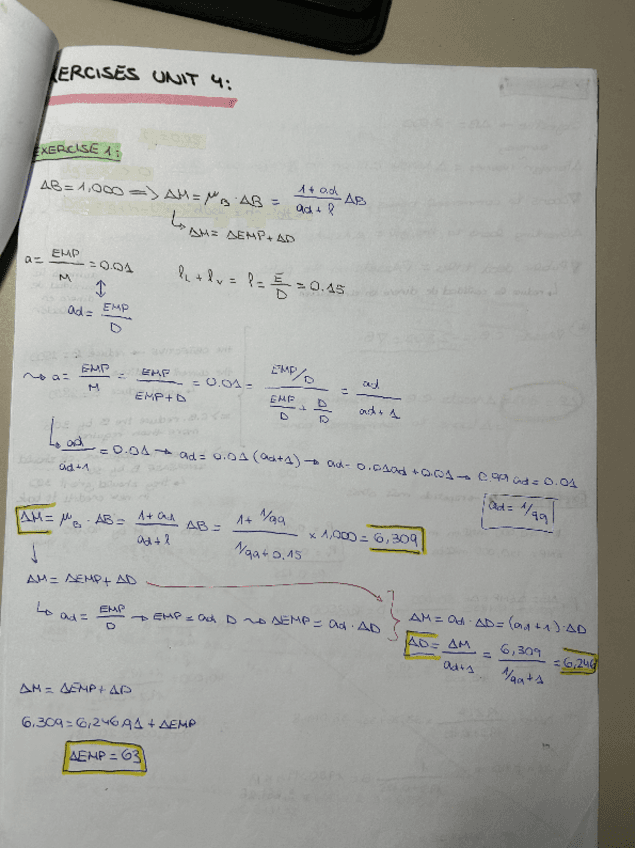 ERCISES UNIT 4:
EXERCISE 1:
ΔB = 1,000 => ΔM = μ_B · ΔB = (1 + ad)/(ad + l) ΔB
↳ ΔM = ΔEMP + ΔD
a = EMP/M = 0.01
l_L + l_V = l = E/D = 0.15
↕
ad = EMP/D
~> a = EMP/M = EMP/(EMP + D) = 0.01 = (EMP/D)/(EMP/D + D/D) = ad/(ad + 1)
↳ ad/(ad+1) = 0.01 → ad = 0.01 (ad+1) → ad - 0.01ad + 0.01 → 0.99 ad = 0.01
ad = 1/99
ΔM = μ_B · ΔB = (1 + ad)/(ad + l) ΔB = (1 + 1/99)/(1/99 + 0.15) × 1,000 = 6,309
↓
ΔM = ΔEMP + ΔD
↳ ad = EMP/D → EMP = ad D ~> ΔEMP = ad · ΔD
ΔM = ad · ΔD = (ad + 1) · ΔD
ΔD = ΔM/(ad+1) = 6,309/(1/99 + 1) = 6,246
ΔM = ΔEMP + ΔD
6,309 = 6,246.91 + ΔEMP
ΔEMP = 63